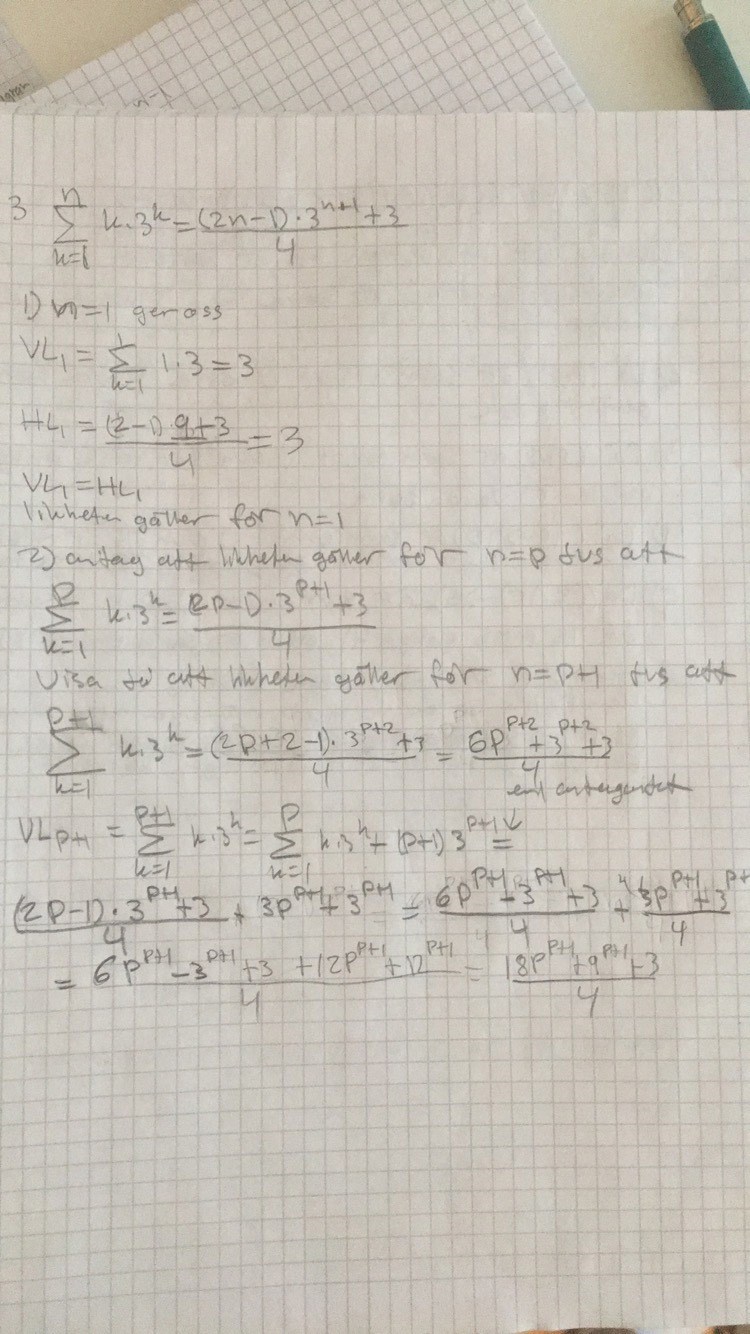 3 \sum_{k=1}^{n} k·3^k = \frac{(2n-1)·3^{n+1}+3}{4}
1) n=1 ger oss
VL_1 = \sum_{k=1}^{1} 1·3 = 3
HL_1 = \frac{(2-1)9+3}{4} = 3
VL_1 = HL_1
likheten gäller för n=1
2) antag att likheten gäller för n=p dvs att
\sum_{k=1}^{p} k·3^k = \frac{(2p-1)·3^{p+1}+3}{4}
Visa då att likheten gäller för n=p+1 dvs att
\sum_{k=1}^{p+1} k·3^k = \frac{(2p+2-1)·3^{p+2}+3}{4} = \frac{6p^{p+2}+3^{p+2}+3}{4}
enl antagandet
VL_{p+1} = \sum_{k=1}^{p+1} k·3^k = \sum_{k=1}^{p} k·3^k + (p+1)3^{p+1} =
\frac{(2p-1)·3^{p+1}+3}{4} + 3p^{p+1}+3^{p+1} = \frac{6p^{p+1}-3^{p+1}+3}{4} + \frac{3p^{p+1}+3^{p+1}}{4}
= \frac{6p^{p+1}-3^{p+1}+3+12p^{p+1}+12^{p+1}}{4} = \frac{18p^{p+1}+9^{p+1}+3}{4}